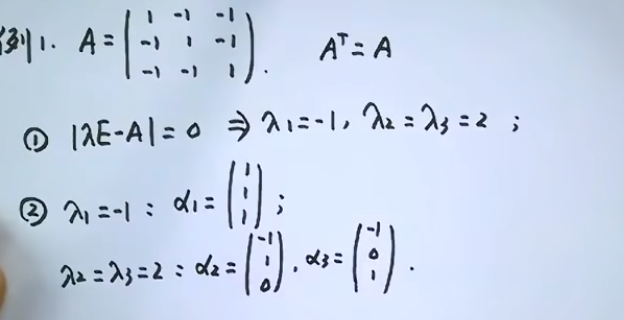 例1. A = ( 1 -1 -1
-1 1 -1
-1 -1 1 ). Aᵀ = A
① |λE-A| = 0 ⇒ λ₁=-1, λ₂=λ₃=2 ;
② λ₁=-1 : α₁= ( 1 1 1 ) ;
λ₂=λ₃=2 : α₂= ( -1 1 0 ), α₃= ( -1 0 1 ).